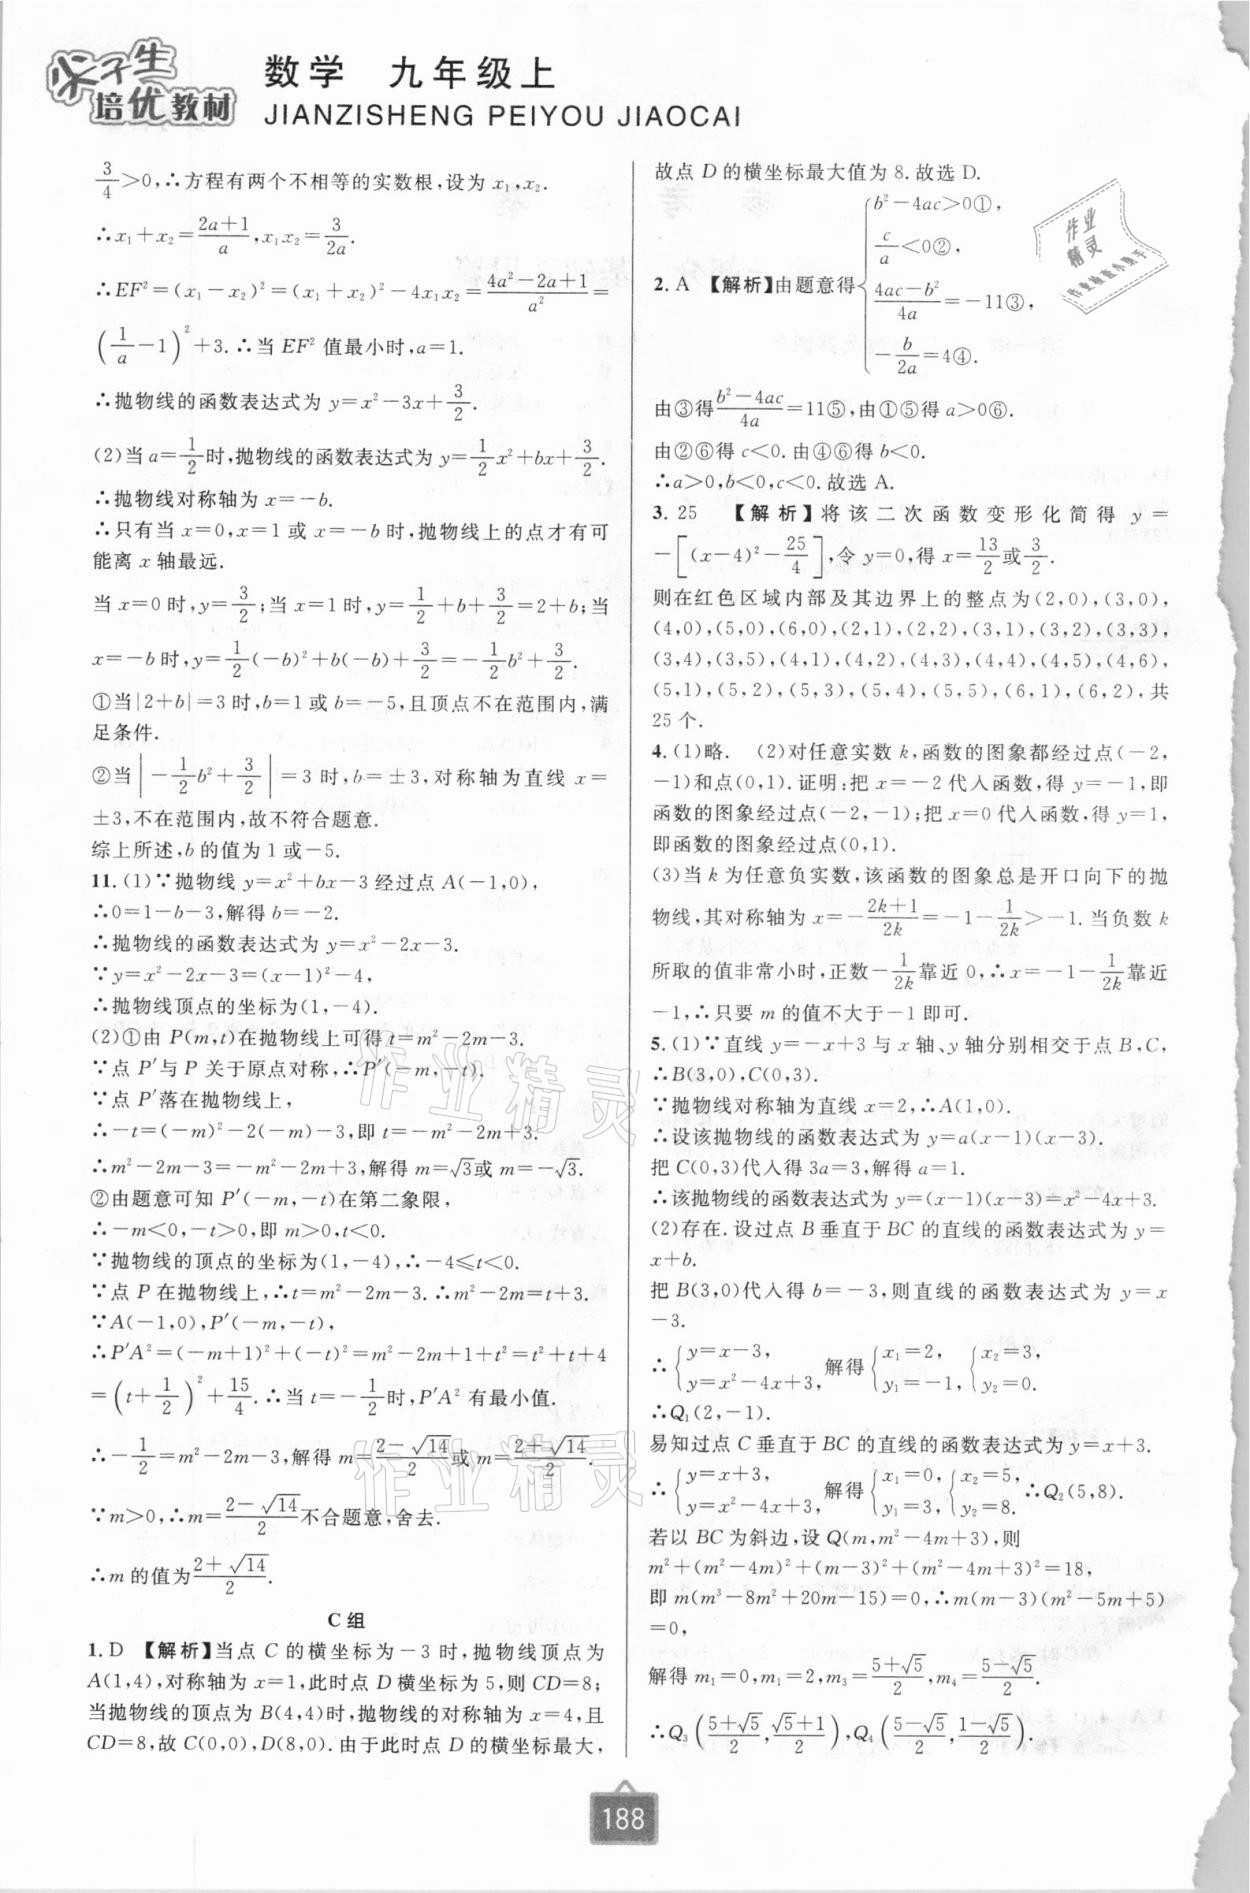 尖子生
培优教材
数学 九年级上
JIANZISHENG PEIYOU JIAOCAI
3/4>0,∴方程有两个不相等的实数根,设为 x₁,x₂.
∴x₁+x₂=(2a+1)/a,x₁x₂=3/(2a).
∴EF²=(x₁-x₂)²=(x₁+x₂)²-4x₁x₂=(4a²-2a+1)/a²=
(1/a-1)²+3.∴当 EF² 值最小时,a=1.
∴抛物线的函数表达式为 y=x²-3x+3/2.
(2)当 a=1/2时,抛物线的函数表达式为 y=1/2x²+bx+3/2.
∴抛物线对称轴为 x=-b.
∴只有当 x=0,x=1 或 x=-b 时,抛物线上的点才有可
能离 x 轴最远.
当 x=0 时,y=3/2;当 x=1 时,y=1/2+b+3/2=2+b;当
x=-b 时,y=1/2(-b)²+b(-b)+3/2=-1/2b²+3/2.
①当|2+b|=3 时,b=1 或 b=-5,且顶点不在范围内,满
足条件.
②当|-1/2b²+3/2|=3 时,b=±3,对称轴为直线 x=
±3,不在范围内,故不符合题意.
综上所述,b 的值为 1 或-5.
11.(1)∵抛物线 y=x²+bx-3 经过点 A(-1,0),
∴0=1-b-3,解得 b=-2.
∴抛物线的函数表达式为 y=x²-2x-3.
∵y=x²-2x-3=(x-1)²-4,
∴抛物线顶点的坐标为(1,-4).
(2)①由 P(m,t)在抛物线上可得 t=m²-2m-3.
∵点 P′与 P 关于原点对称,∴P′(-m,-t).
∵点 P′落在抛物线上,
∴-t=(-m)²-2(-m)-3,即 t=-m²-2m+3.
∴m²-2m-3=-m²-2m+3,解得 m=√3或 m=-√3.
②由题意可知 P′(-m,-t)在第二象限,
∴-m<0,-t>0,即 m>0,t<0.
∵抛物线的顶点的坐标为(1,-4),∴-4≤t<0.
∵点 P 在抛物线上,∴t=m²-2m-3.∴m²-2m=t+3.
∵A(-1,0),P′(-m,-t),
∴P′A²=(-m+1)²+(-t)²=m²-2m+1+t²=t²+t+4
=(t+1/2)²+15/4.∴当 t=-1/2时,P′A² 有最小值.
∴-1/2=m²-2m-3,解得 m=(2-√14)/2或 m=(2+√14)/2.
∵m>0,∴m=(2-√14)/2不合题意,舍去.
∴m 的值为(2+√14)/2.
C 组
1. D 【解析】当点 C 的横坐标为-3 时,抛物线顶点为
A(1,4),对称轴为 x=1,此时点 D 横坐标为 5,则 CD=8;
当抛物线的顶点为 B(4,4)时,抛物线的对称轴为 x=4,且
CD=8,故 C(0,0),D(8,0).由于此时点 D 的横坐标最大,
故点 D 的横坐标最大值为 8.故选 D.
2. A 【解析】由题意得{b²-4ac>0①,
c/a<0②,
(4ac-b²)/4a=-11③,
-b/2a=4④.
由③得(b²-4ac)/4a=11⑤,由①⑤得 a>0⑥.
由②⑥得 c<0.由④⑥得 b<0.
∴a>0,b<0,c<0.故选 A.
3. 25 【解析】将该二次函数变形化简得 y=
-[(x-4)²-25/4],令 y=0,得 x=13/2或3/2.
则在红色区域内部及其边界上的整点为(2,0),(3,0),
(4,0),(5,0),(6,0),(2,1),(2,2),(3,1),(3,2),(3,3),
(3,4),(3,5),(4,1),(4,2),(4,3),(4,4),(4,5),(4,6),
(5,1),(5,2),(5,3),(5,4),(5,5),(6,1),(6,2),共
25 个.
4.(1)略. (2)对任意实数 k,函数的图象都经过点(-2,
-1)和点(0,1).证明:把 x=-2 代入函数,得 y=-1,即
函数的图象经过点(-2,-1);把 x=0代入函数,得 y=1,
即函数的图象经过点(0,1).
(3)当 k 为任意负实数,该函数的图象总是开口向下的抛
物线,其对称轴为 x=-(2k+1)/2k=-1-1/2k>-1.当负数 k
所取的值非常小时,正数-1/2k靠近 0,∴x=-1-1/2k靠近
-1,∴只要 m 的值不大于-1 即可.
5.(1)∵直线 y=-x+3 与 x 轴、y 轴分别相交于点 B,C,
∴B(3,0),C(0,3).
∵抛物线对称轴为直线 x=2,∴A(1,0).
∴设该抛物线的函数表达式为 y=a(x-1)(x-3).
把 C(0,3)代入得 3a=3,解得 a=1.
∴该抛物线的函数表达式为 y=(x-1)(x-3)=x²-4x+3.
(2)存在.设过点 B 垂直于 BC 的直线的函数表达式为 y=
x+b.
把 B(3,0)代入得 b=-3,则直线的函数表达式为 y=x
-3.
∴{y=x-3, y=x²-4x+3, 解得{x₁=2, y₁=-1, {x₂=3, y₂=0.
∴Q₁(2,-1).
易知过点 C 垂直于 BC 的直线的函数表达式为 y=x+3.
∴{y=x+3, y=x²-4x+3, 解得{x₁=0, y₁=3, {x₂=5, y₂=8. ∴Q₂(5,8).
若以 BC 为斜边,设 Q(m,m²-4m+3),则
m²+(m²-4m)²+(m-3)²+(m²-4m+3)²=18,
即 m(m³-8m²+20m-15)=0,∴m(m-3)(m²-5m+5)
=0,
解得 m₁=0,m₁=2,m₃=(5+√5)/2,m₄=(5-√5)/2.
∴Q₃((5+√5)/2,(√5+1)/2),Q₄((5-√5)/2,(1-√5)/2).
188
作业
精灵
作业精灵
作业精灵